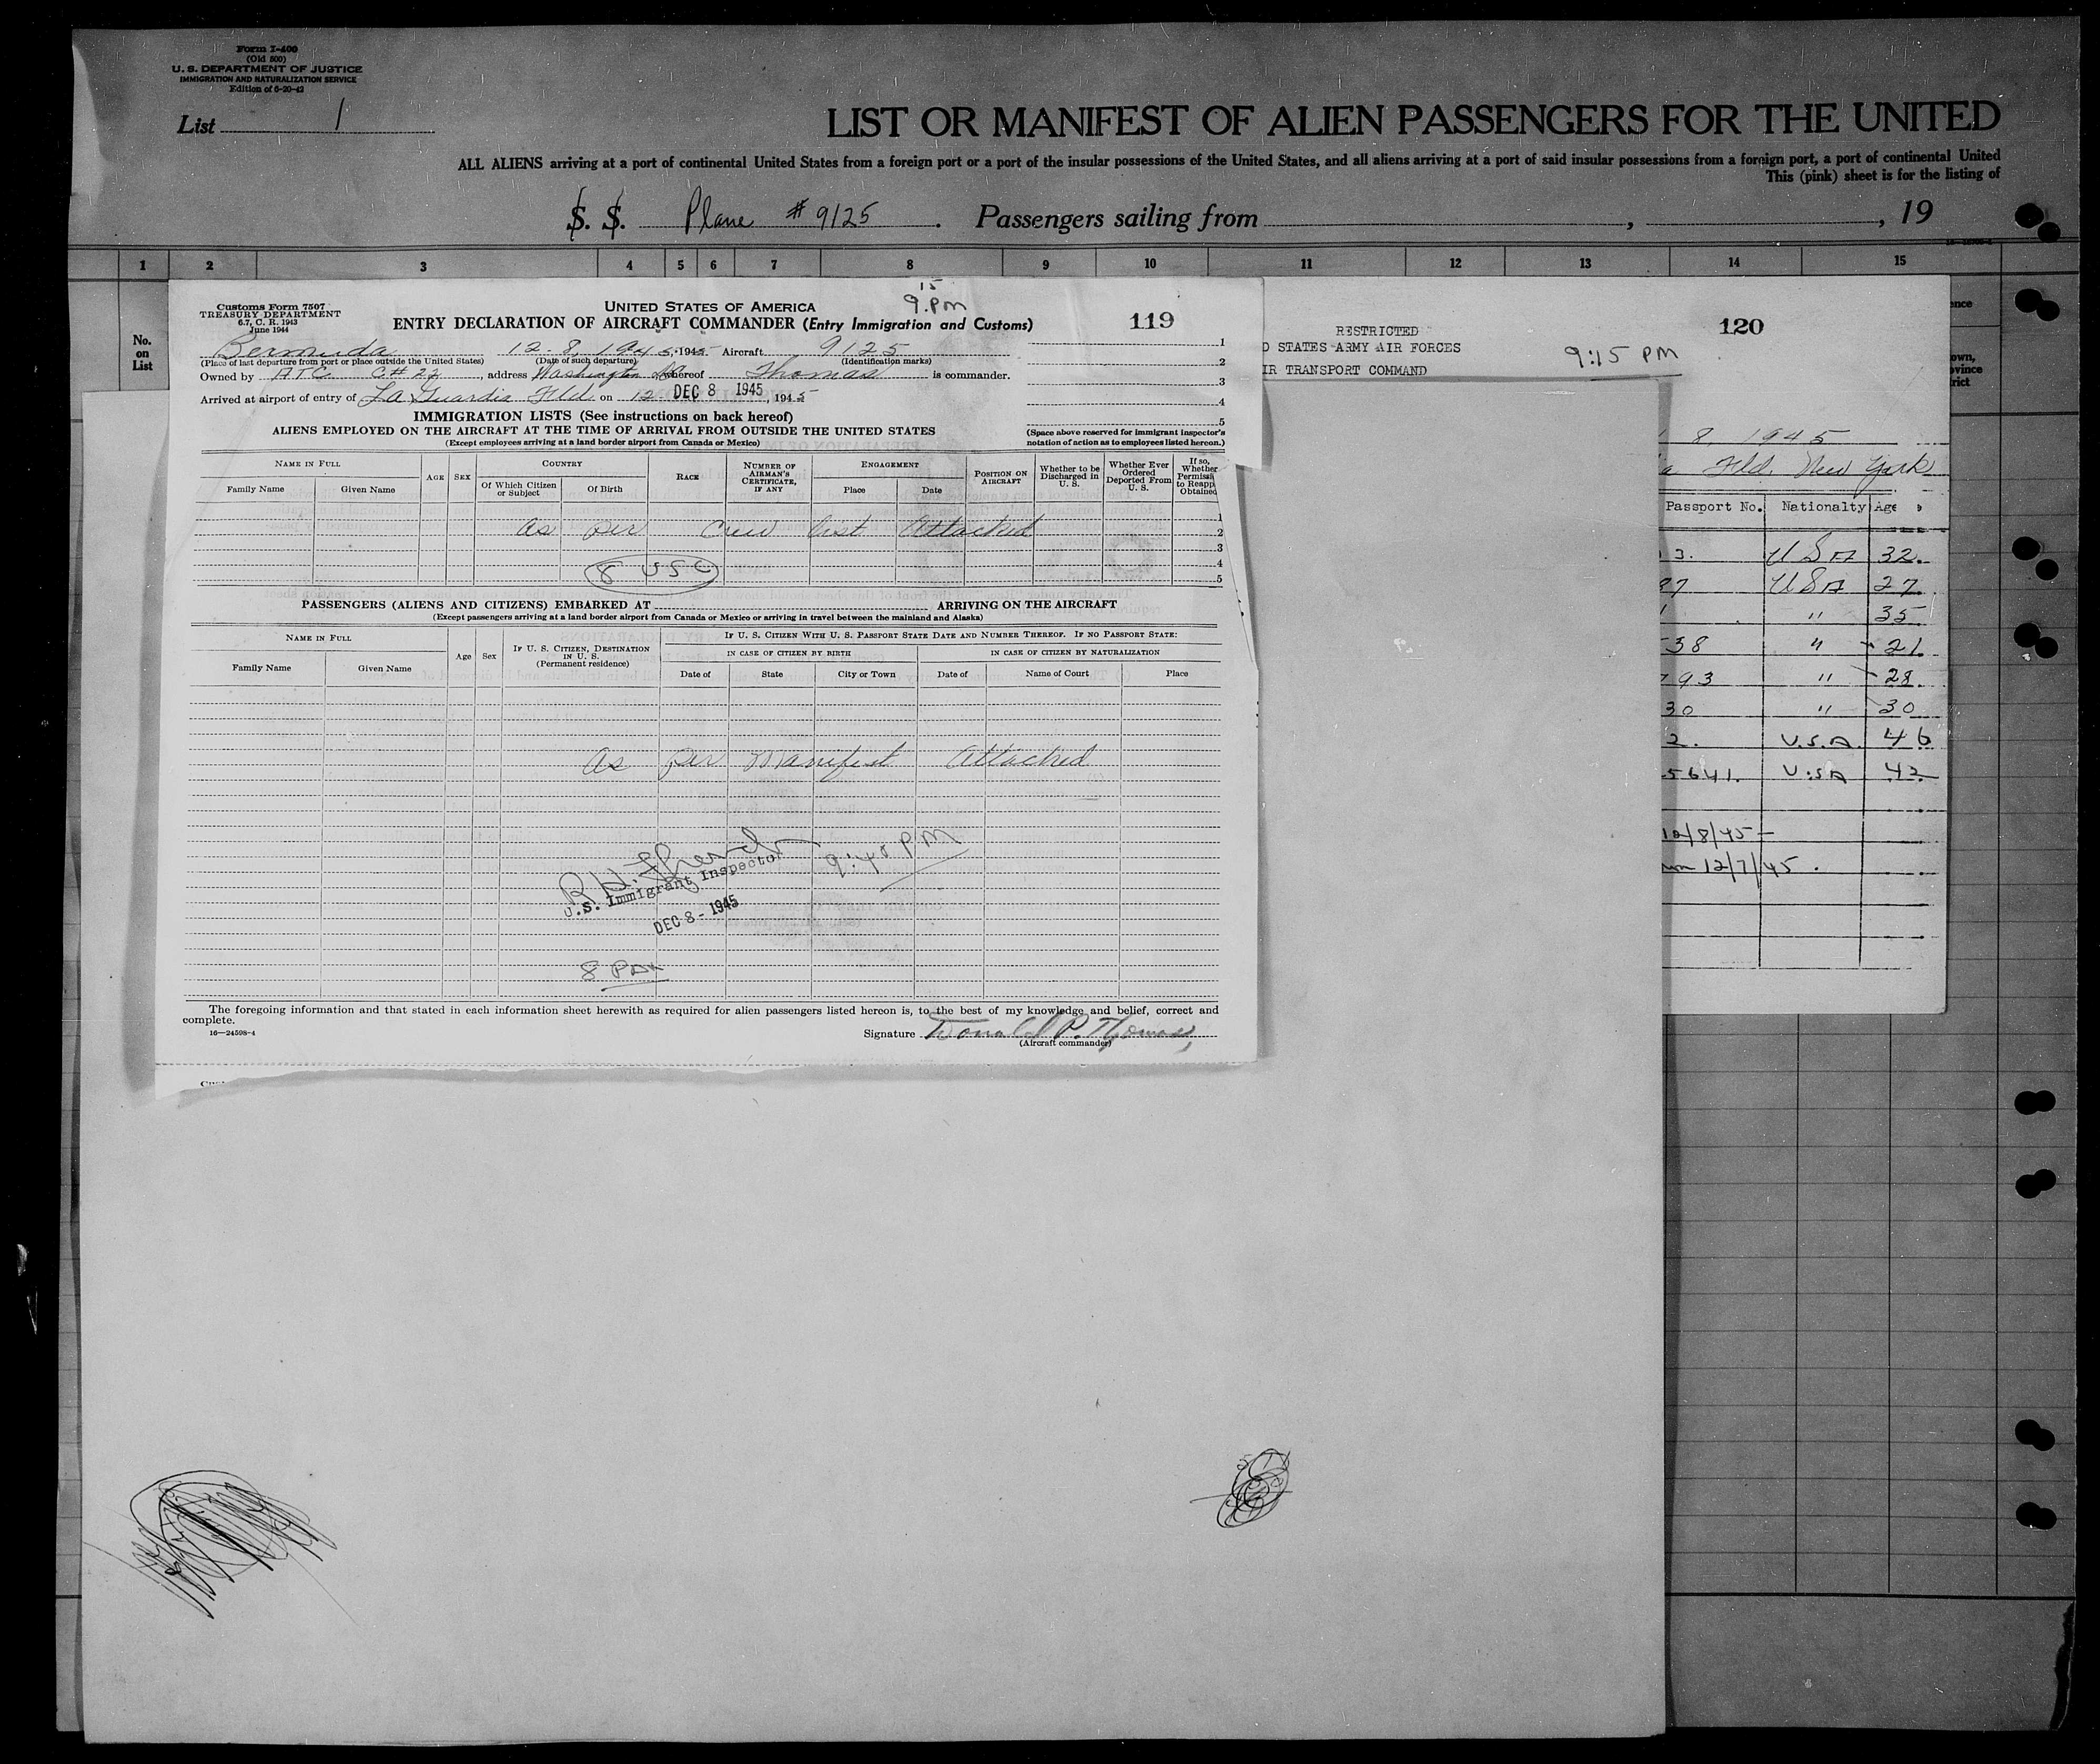 Form I-400
(Old 500)
U. S. DEPARTMENT OF JUSTICE
IMMIGRATION AND NATURALIZATION SERVICE
Edition of 6-20-42
List 1
LIST OR MANIFEST OF ALIEN PASSENGERS FOR THE UNITED
ALL ALIENS arriving at a port of continental United States from a foreign port or a port of the insular possessions of the United States, and all aliens arriving at a port of said insular possessions from a foreign port, a port of continental United
This (pink) sheet is for the listing of
S. S. Plane # 9125. Passengers sailing from , , 19
1 2 3 4 5 6 7 8 9 10 11 12 13 14 15
No. on List
Customs Form 7507
TREASURY DEPARTMENT
6.7, C. R. 1943
June 1944
UNITED STATES OF AMERICA
15
9.PM
119
ENTRY DECLARATION OF AIRCRAFT COMMANDER (Entry Immigration and Customs)
Bermuda 12-8, 1945, 1945 Aircraft 9125
(Place of last departure from port or place outside the United States) (Date of such departure) (Identification marks)
Owned by ATC C# 22, address Washington whereof Thomas is commander.
Arrived at airport of entry of La Guardia Fld on 12 DEC 8 1945, 1945
1
2
3
4
5
IMMIGRATION LISTS (See instructions on back hereof)
ALIENS EMPLOYED ON THE AIRCRAFT AT THE TIME OF ARRIVAL FROM OUTSIDE THE UNITED STATES
(Except employees arriving at a land border airport from Canada or Mexico)
(Space above reserved for immigrant inspector's
notation of action as to employees listed hereon.)
NAME IN FULL
Family Name Given Name
AGE SEX
COUNTRY
Of Which Citizen or Subject Of Birth
RACE
NUMBER OF AIRMAN'S CERTIFICATE, IF ANY
ENGAGEMENT
Place Date
POSITION ON AIRCRAFT
Whether to be Discharged in U. S.
Whether Ever Ordered Deported From U. S.
If so, Whether Permiss to Reapp Obtained
1
As per Crew list Attached 2
3
4
8 USC 5
PASSENGERS (ALIENS AND CITIZENS) EMBARKED AT ARRIVING ON THE AIRCRAFT
(Except passengers arriving at a land border airport from Canada or Mexico or arriving in travel between the mainland and Alaska)
NAME IN FULL
Family Name Given Name
Age Sex
IF U. S. CITIZEN, DESTINATION IN U. S.
(Permanent residence)
IF U. S. CITIZEN WITH U. S. PASSPORT STATE DATE AND NUMBER THEREOF. IF NO PASSPORT STATE:
IN CASE OF CITIZEN BY BIRTH IN CASE OF CITIZEN BY NATURALIZATION
Date of State City or Town Date of Name of Court Place
As per Manifest Attached
9:40 PM
U.S. Immigrant Inspector
DEC 8 - 1945
8 Pax
The foregoing information and that stated in each information sheet herewith as required for alien passengers listed hereon is, to the best of my knowledge and belief, correct and
complete.
16—24598-4
Signature Donald P. Thomas,
(Aircraft commander)
RESTRICTED
D STATES ARMY AIR FORCES
IR TRANSPORT COMMAND
9:15 PM
120
8, 1945
Fld. New York
Passport No. Nationalty Age
3. USA 32.
97 USA 27
" 35
38 " 21
793 " 28.
30 " 30
2. U.S.A. 46
5641. U.S.A 42
12/8/45 —
12/7/45.